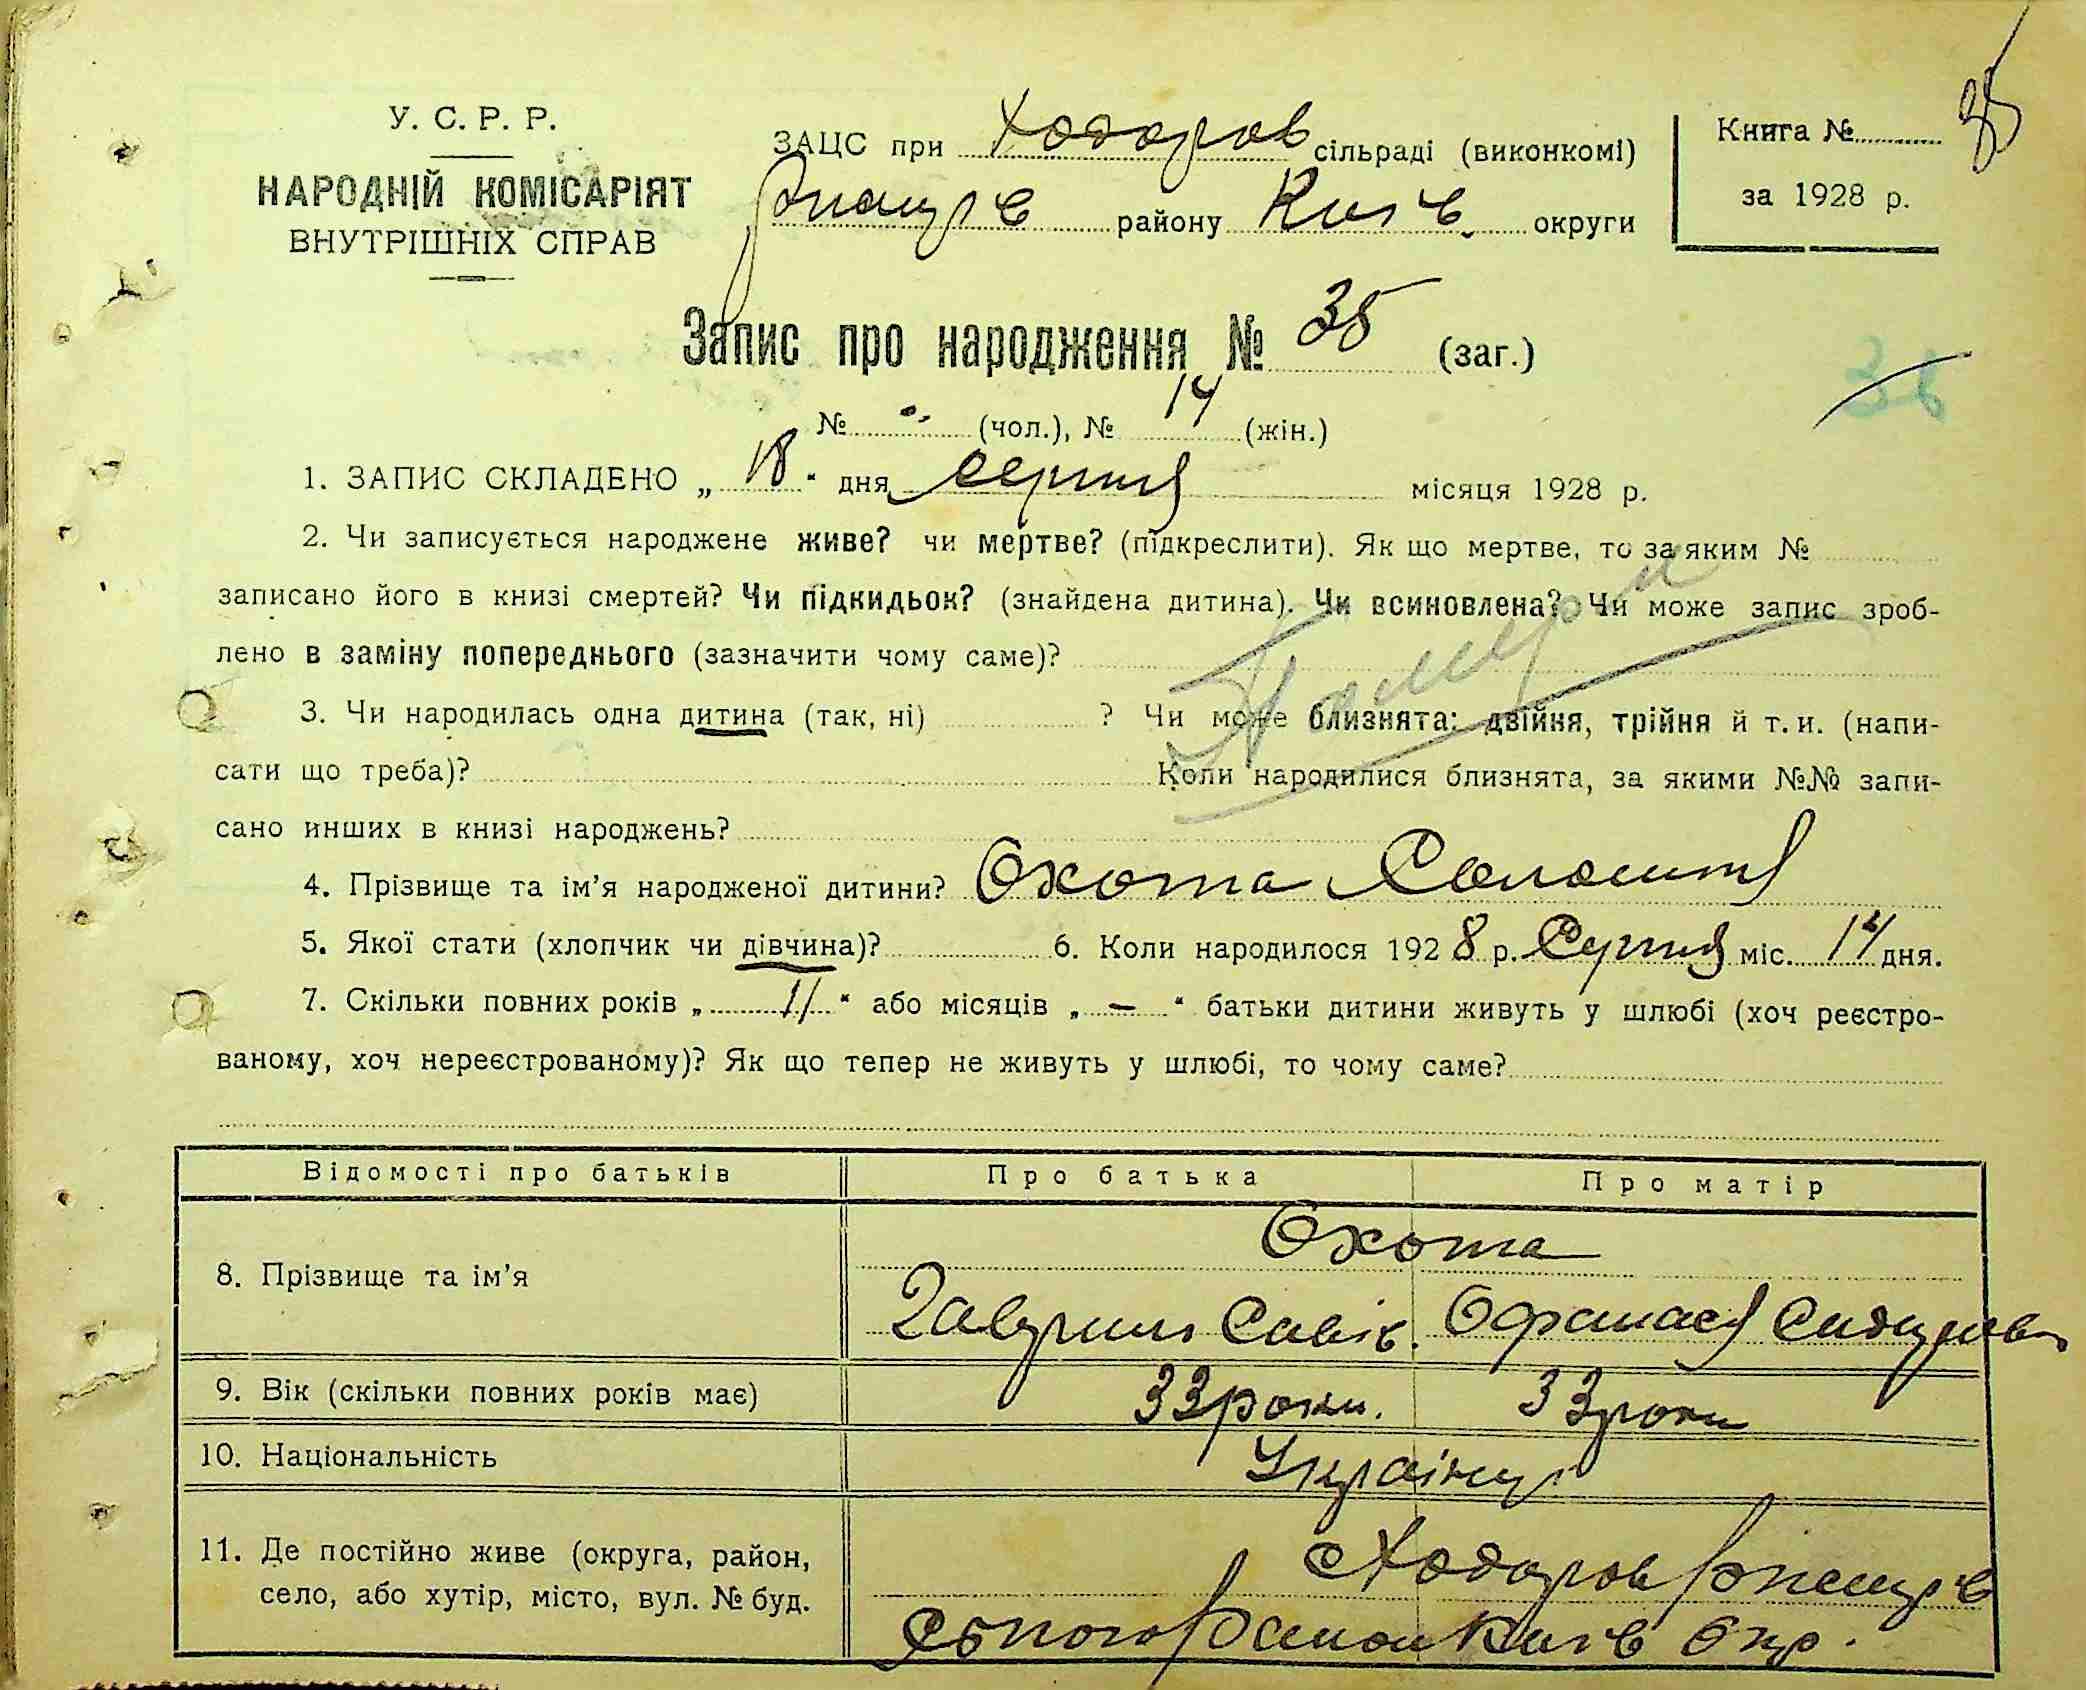 У. С. Р. Р.
НАРОДНІЙ КОМІСАРІЯТ
ВНУТРІШНІХ СПРАВ
ЗАЦС при Ходоров сільраді (виконкомі)
Ржищев району Київ. округи
Книга №
за 1928 р.
Запис про народження № 35 (заг.)
№ " (чол.), № 14 (жін.)
1. ЗАПИС СКЛАДЕНО „ 18 “ дня серпня місяця 1928 р.
2. Чи записується народжене живе? чи мертве? (підкреслити). Як що мертве, то за яким №
записано його в книзі смертей? Чи підкидьок? (знайдена дитина). Чи всиновлена? Чи може запис зроб-
лено в заміну попереднього (зазначити чому саме)?
Померла
3. Чи народилась одна дитина (так, ні) ? Чи може близнята: двійня, трійня й т. и. (напи-
сати що треба)? Коли народилися близнята, за якими №№ запи-
сано инших в книзі народжень?
4. Прізвище та ім’я народженої дитини? Охота Соломія
5. Якої стати (хлопчик чи дівчина)? 6. Коли народилося 1928 р. Серпня міс. 14 дня.
7. Скільки повних років „ 11 “ або місяців „ — “ батьки дитини живуть у шлюбі (хоч реєстро-
ваному, хоч нереєстрованому)? Як що тепер не живуть у шлюбі, то чому саме?
Відомості про батьків Про батька Про матір
Охота
8. Прізвище та ім’я
Гаврило Савів. Офанасія Сидорівн
9. Вік (скільки повних років має) 33 роки. 33 роки
10. Національність Українці
11. Де постійно живе (округа, район,
село, або хутір, місто, вул. № буд.
с Ходоров Ржищев
ського Району Київ Окр.